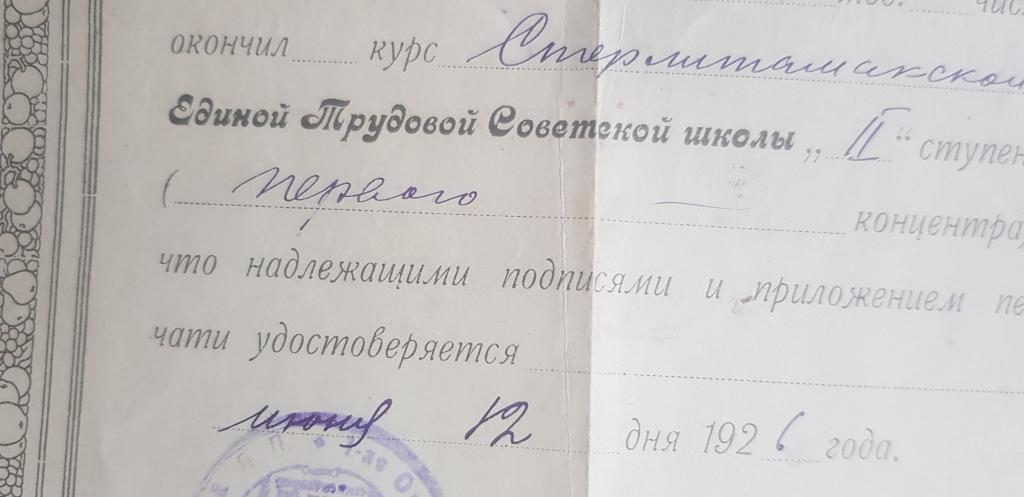 окончил курс Стерлитамакской
Единой Трудовой Советской школы „II“ ступен
( первого концентра
что надлежащими подписями и приложением пе
чати удостоверяется
июня 12 дня 1926 года.